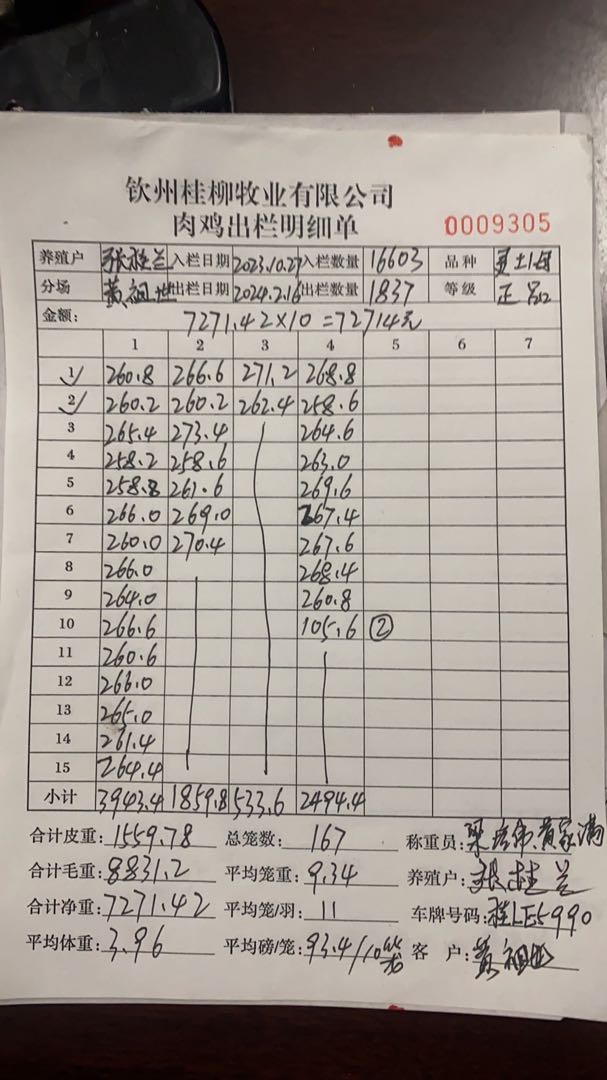 钦州桂柳牧业有限公司
肉鸡出栏明细单
0009305
养殖户 张桂兰 入栏日期 2023.10.27 入栏数量 16603 品种
分场 黄祖 出栏日期 2024.2.16 出栏数量 1837 等级 正
金额: 7271.42×10=72714元
1 2 3 4 5 6 7
1 260.8 266.6 271.2 268.8
2 260.2 260.2 262.4 258.6
3 265.4 273.4 264.6
4 258.2 258.6 263.0
5 258.8 261.6 269.6
6 266.0 269.0 267.4
7 260.0 270.4 267.6
8 266.0 268.4
9 264.0 260.8
10 266.6 105.6 ②
11 260.6
12 266.0
13 265.0
14 261.4
15 264.4
小计 3943.4 1859.8 533.6 2494.4
合计皮重: 1559.78 总笼数: 167 称重员:
合计毛重: 8831.2 平均笼重: 9.34 养殖户: 张桂兰
合计净重: 7271.42 平均笼/羽: 11 车牌号码: 桂LE5990
平均体重: 3.96 平均磅/笼: 93.4/10 客 户: 黄祖